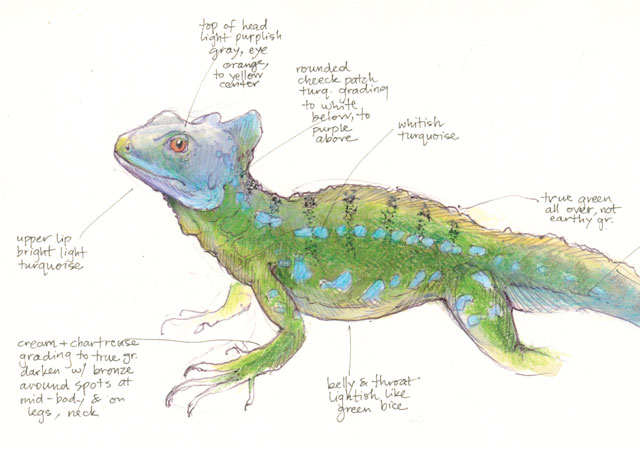 top of head
light purplish
gray, eye
orange,
to yellow
center
rounded
cheeck patch
turq. grading
to white
below, to
purple
above
whitish
turquoise
true green
all over, not
earthy gr.
upper lip
bright light
turquoise
cream + chartreuse
grading to true gr.
darken w/ bronze
around spots at
mid-body & on
legs, neck
belly & throat
lightish like
green bice